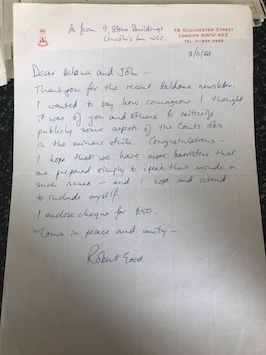 As from 9, Stone Buildings
Lincoln's Inn WC2.
78 GLOUCESTER STREET
LONDON SW1V 4EE
TEL. 01-834
Dear Helena and John –
Thank you for the recent Haldane newsletter.
I wanted to say how courageous I thought
it was of you and others to criticize
publicly some aspects of the Courts role
in the miners strike. Congratulations –
I hope that we have more barristers that
are prepared simply to speak their minds on
such issues – and I hope and intend
to include myself.
I enclose cheque for £50.
Yours in peace and unity –
Robert